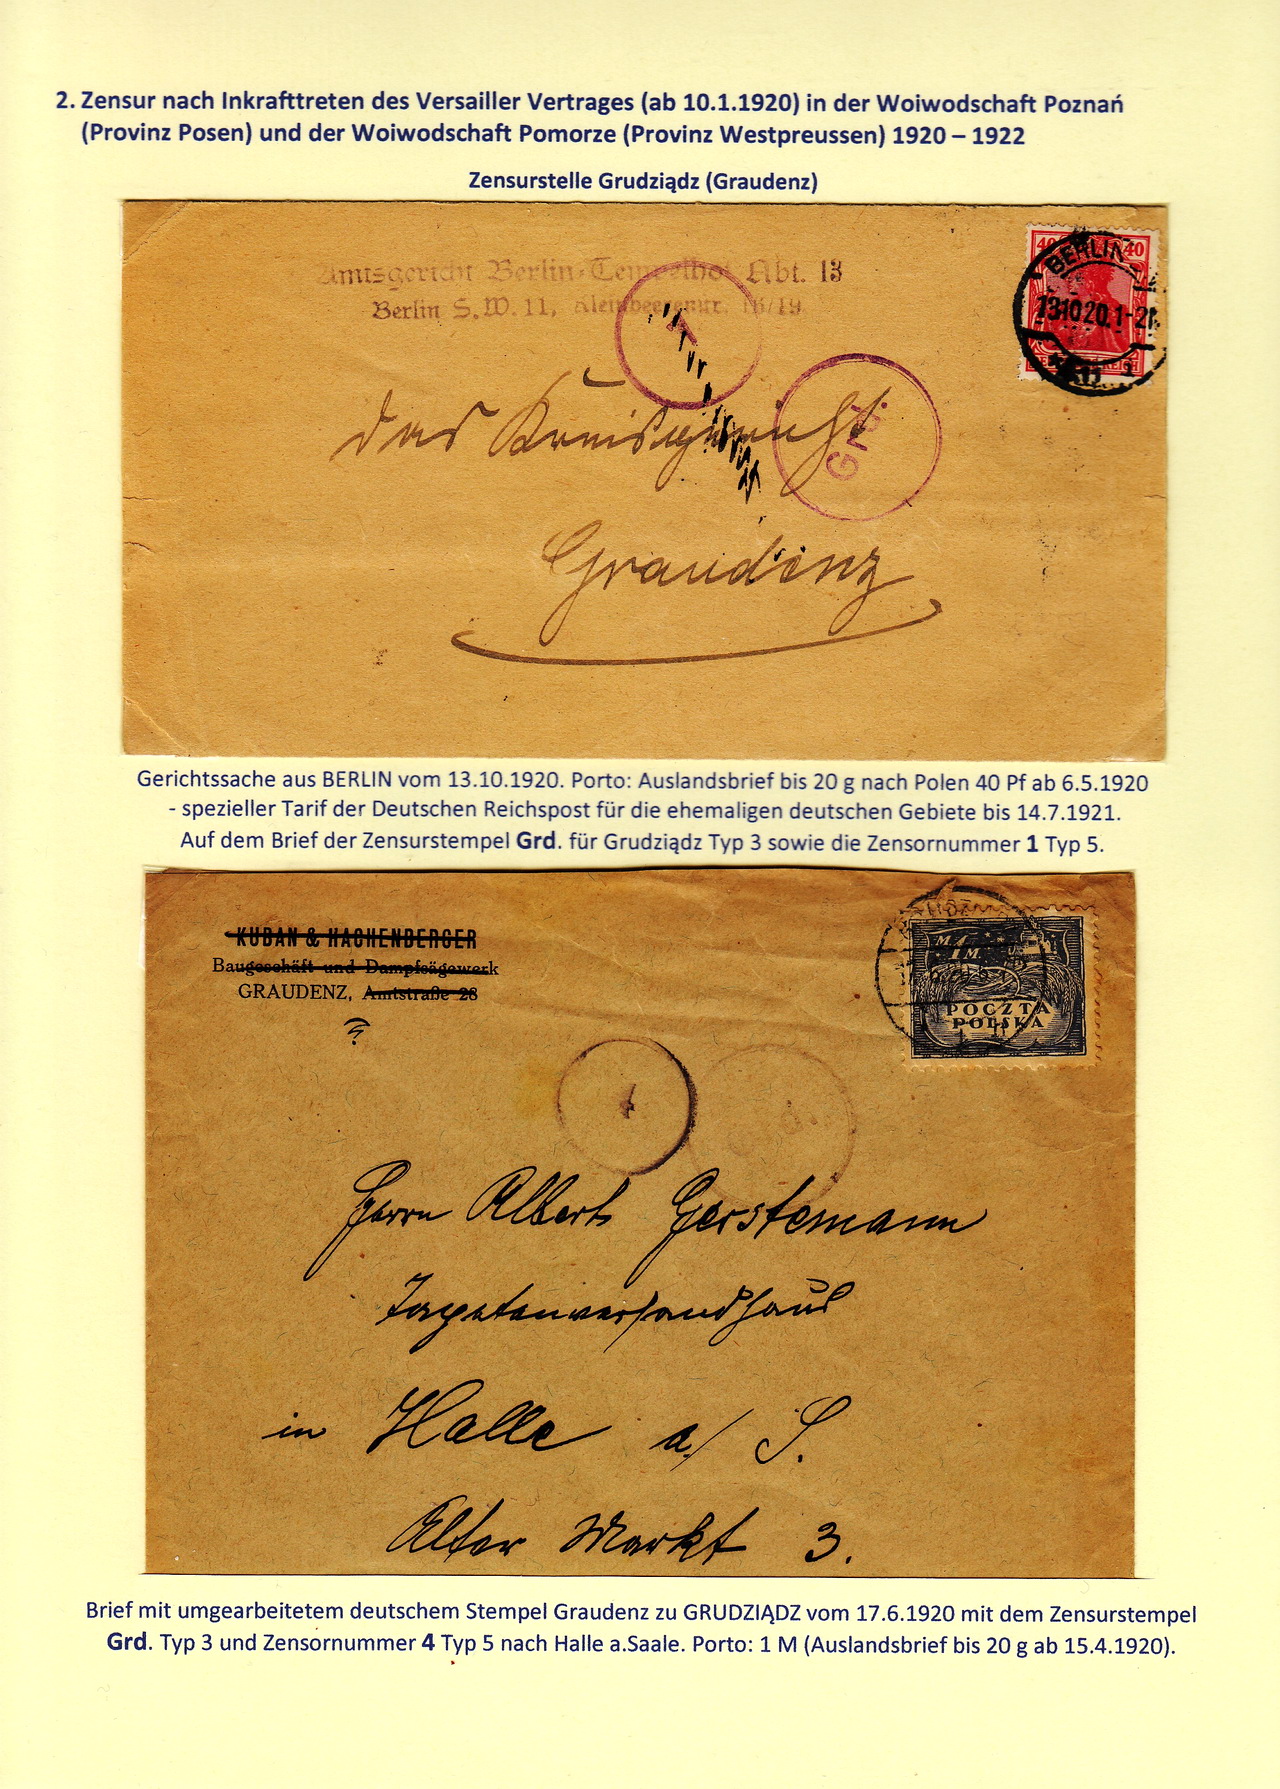 2. Zensur nach Inkrafttreten des Versailler Vertrages (ab 10.1.1920) in der Woiwodschaft Poznań
(Provinz Posen) und der Woiwodschaft Pomorze (Provinz Westpreussen) 1920 – 1922
Zensurstelle Grudziądz (Graudenz)
Amtsgericht Berlin-Tempelhof Abt. 13
Berlin S.W. 11, Kleinbeerenstr. 16/19
40 40
BERLIN
13.10.20.1-2
1
Grd.
das Kreisgericht
Graudenz
Gerichtssache aus BERLIN vom 13.10.1920. Porto: Auslandsbrief bis 20 g nach Polen 40 Pf ab 6.5.1920
- spezieller Tarif der Deutschen Reichspost für die ehemaligen deutschen Gebiete bis 14.7.1921.
Auf dem Brief der Zensurstempel Grd. für Grudziądz Typ 3 sowie die Zensornummer 1 Typ 5.
KUBAN & HACHENBERGER
Baugeschäft und Dampfsägewerk
GRAUDENZ, Amtstraße 28
1 M
POCZTA
POLSKA
4
Grd.
Herrn Albert Gerstemann
Tapetenversandhaus
in Halle a/ S.
Alter Markt 3.
Brief mit umgearbeitetem deutschem Stempel Graudenz zu GRUDZIĄDZ vom 17.6.1920 mit dem Zensurstempel
Grd. Typ 3 und Zensornummer 4 Typ 5 nach Halle a.Saale. Porto: 1 M (Auslandsbrief bis 20 g ab 15.4.1920).